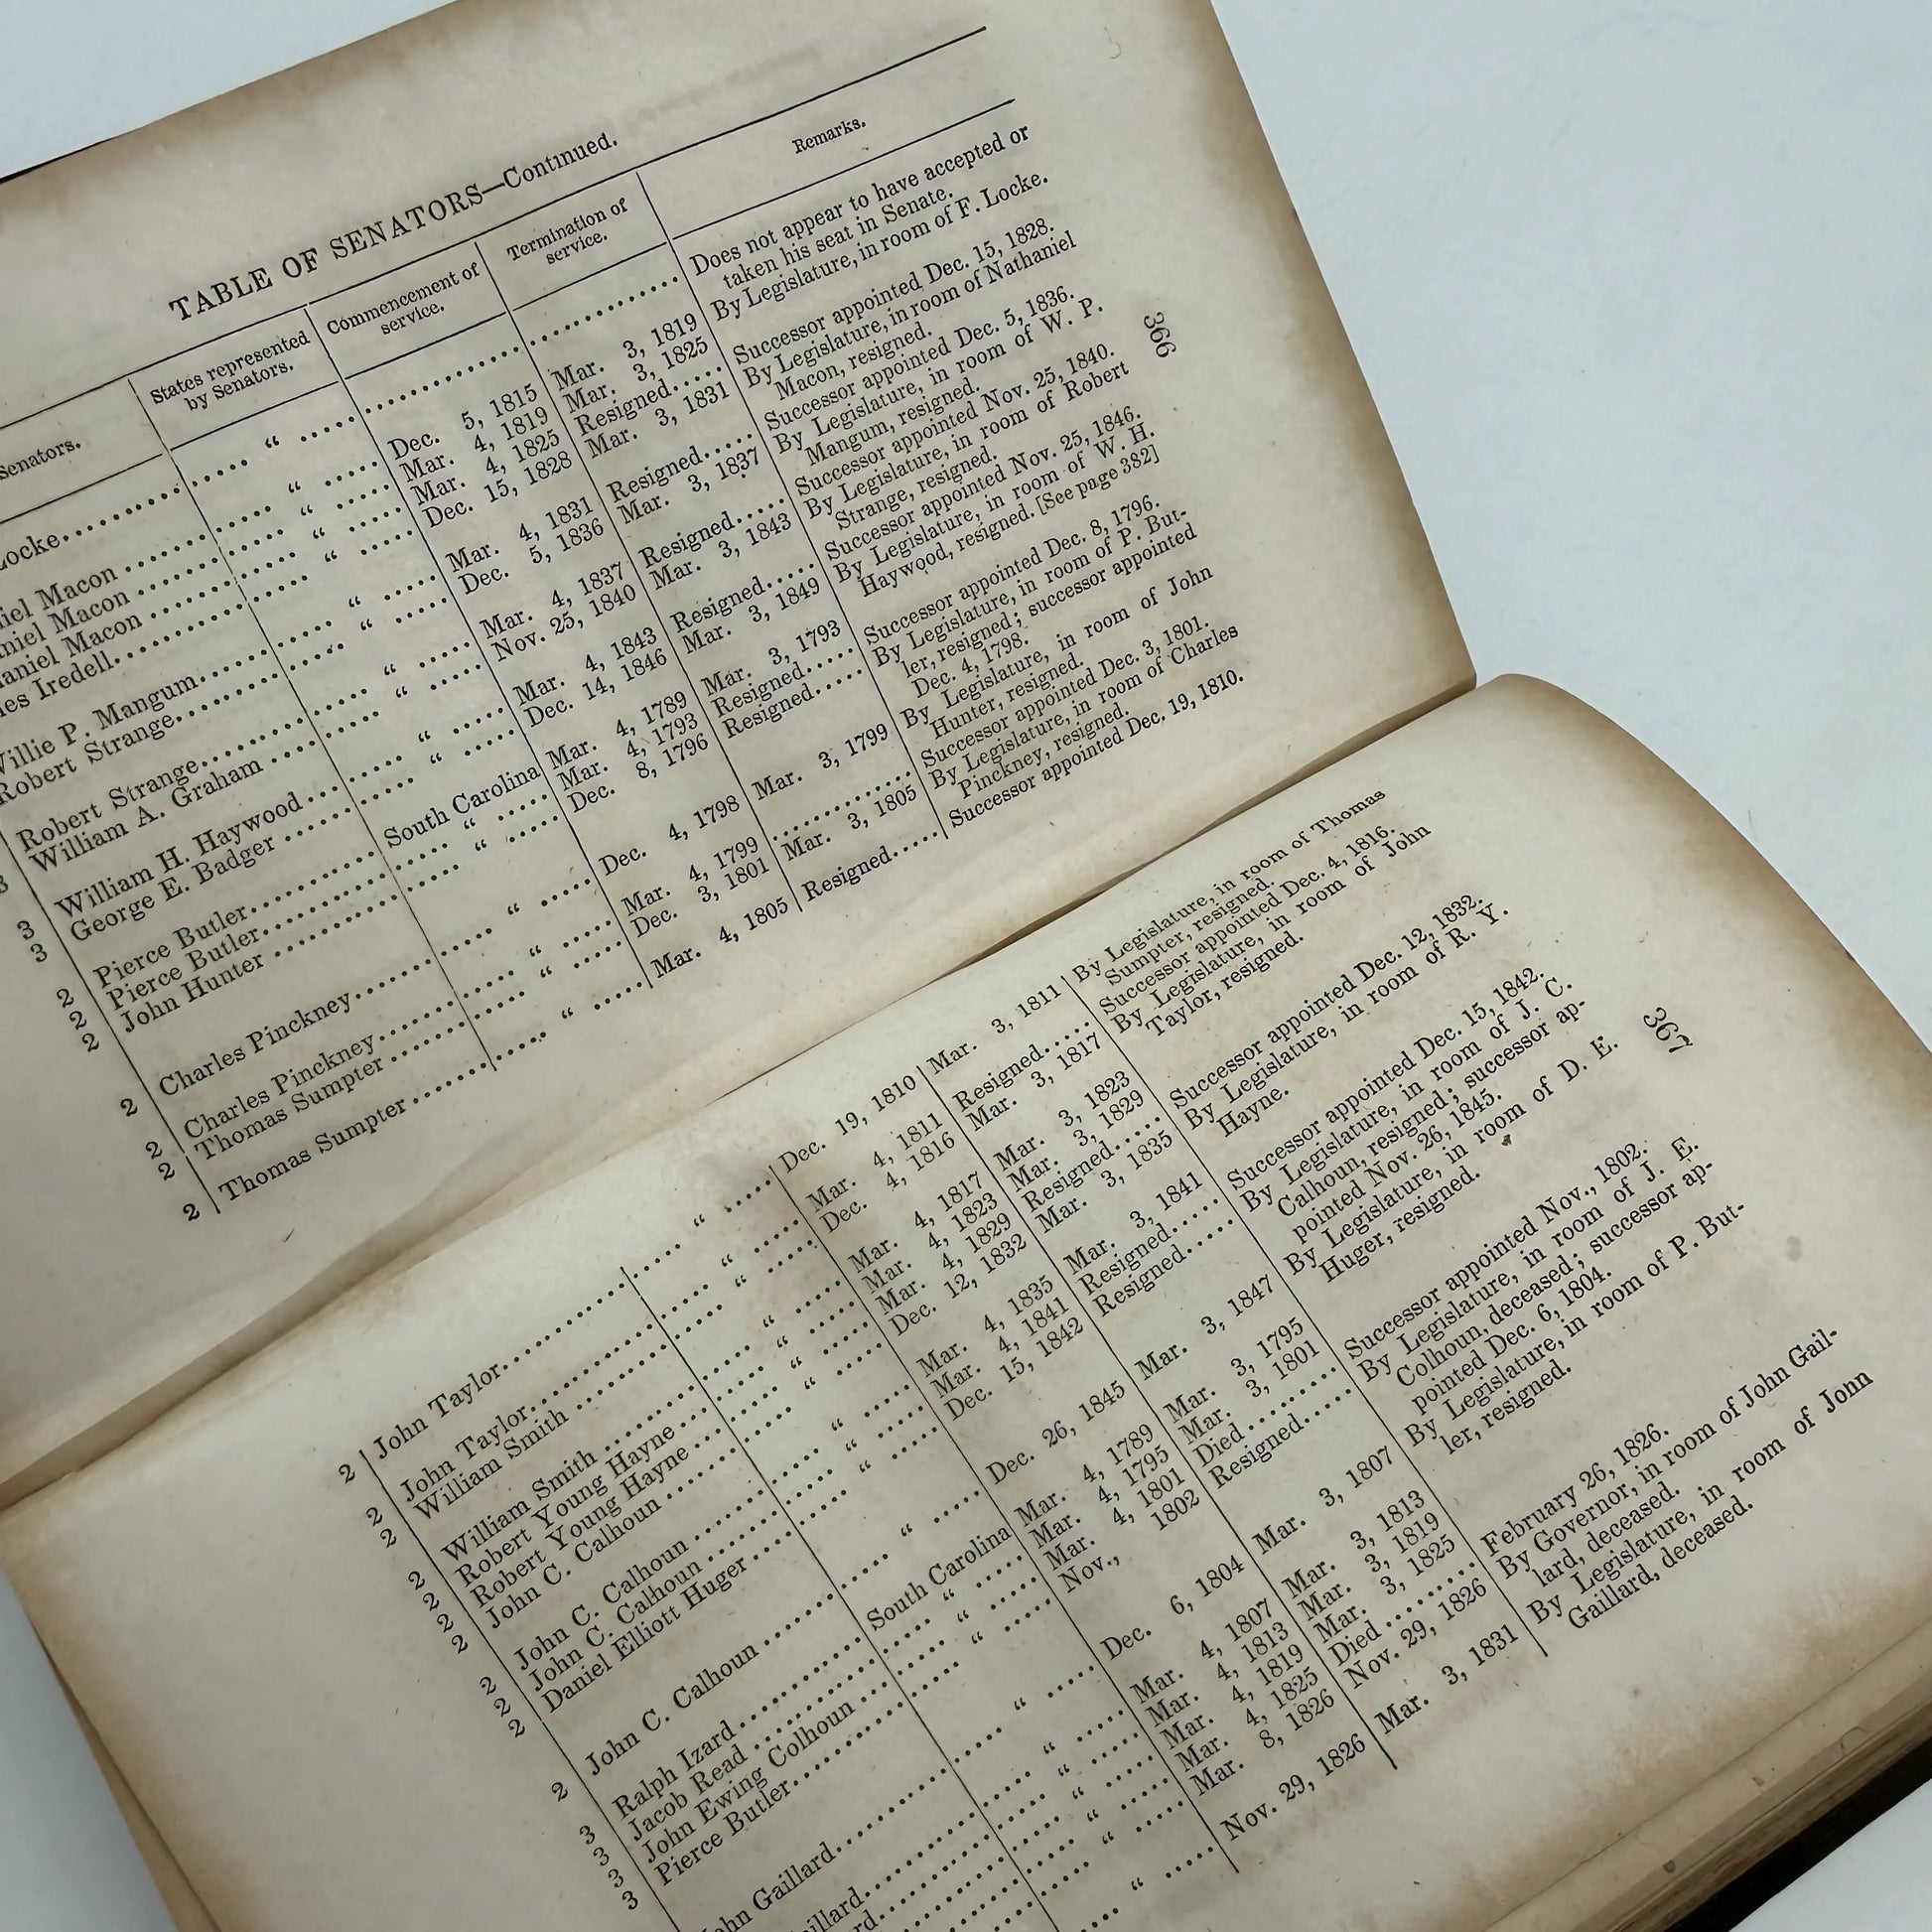 TABLE OF SENATORS—Continued.
Senators. States represented by Senators. Commencement of service. Termination of service. Remarks.
Locke “ Does not appear to have accepted or
taken his seat in Senate.
Macon “ Dec. 5, 1815 Mar. 3, 1819 By Legislature, in room of F. Locke.
Macon “ Mar. 4, 1819 Mar. 3, 1825
Macon “ Mar. 4, 1825 Resigned Successor appointed Dec. 15, 1828.
Iredell “ Dec. 15, 1828 Mar. 3, 1831 By Legislature, in room of Nathaniel
Macon, resigned.
Willie P. Mangum “ Mar. 4, 1831 Resigned Successor appointed Dec. 5, 1836.
Robert Strange “ Dec. 5, 1836 Mar. 3, 1837 By Legislature, in room of W. P.
Mangum, resigned.
Robert Strange “ Mar. 4, 1837 Resigned Successor appointed Nov. 25, 1840.
3 William A. Graham “ Nov. 25, 1840 Mar. 3, 1843 By Legislature, in room of Robert
Strange, resigned.
3 William H. Haywood “ Mar. 4, 1843 Resigned Successor appointed Nov. 25, 1846.
3 George E. Badger “ Dec. 14, 1846 Mar. 3, 1849 By Legislature, in room of W. H.
Haywood, resigned. [See page 382]
2 Pierce Butler South Carolina Mar. 4, 1789 Mar. 3, 1793
2 Pierce Butler “ Mar. 4, 1793 Resigned Successor appointed Dec. 8, 1796.
2 John Hunter “ Dec. 8, 1796 Resigned By Legislature, in room of P. But-
ler, resigned; successor appointed
Dec. 4, 1798.
2 Charles Pinckney “ Dec. 4, 1798 Mar. 3, 1799 By Legislature, in room of John
Hunter, resigned.
2 Charles Pinckney “ Mar. 4, 1799 Successor appointed Dec. 3, 1801.
2 Thomas Sumpter “ Dec. 3, 1801 Mar. 3, 1805 By Legislature, in room of Charles
Pinckney, resigned.
2 Thomas Sumpter “ Mar. 4, 1805 Resigned Successor appointed Dec. 19, 1810.
366
2 John Taylor “ Dec. 19, 1810 Mar. 3, 1811 By Legislature, in room of Thomas
Sumpter, resigned.
2 John Taylor “ Mar. 4, 1811 Resigned Successor appointed Dec. 4, 1816.
2 William Smith “ Dec. 4, 1816 Mar. 3, 1817 By Legislature, in room of John
Taylor, resigned.
2 William Smith “ Mar. 4, 1817 Mar. 3, 1823
2 Robert Young Hayne “ Mar. 4, 1823 Mar. 3, 1829
2 Robert Young Hayne “ Mar. 4, 1829 Resigned Successor appointed Dec. 12, 1832.
2 John C. Calhoun “ Dec. 12, 1832 Mar. 3, 1835 By Legislature, in room of R. Y.
Hayne.
2 John C. Calhoun “ Mar. 4, 1835 Mar. 3, 1841
2 John C. Calhoun “ Mar. 4, 1841 Resigned Successor appointed Dec. 15, 1842.
2 Daniel Elliott Huger “ Dec. 15, 1842 Resigned By Legislature, in room of J. C.
Calhoun, resigned; successor ap-
pointed Nov. 26, 1845.
2 John C. Calhoun “ Dec. 26, 1845 Mar. 3, 1847 By Legislature, in room of D. E.
Huger, resigned.
3 Ralph Izard South Carolina Mar. 4, 1789 Mar. 3, 1795
3 Jacob Read “ Mar. 4, 1795 Mar. 3, 1801
3 John Ewing Colhoun “ Mar. 4, 1801 Died Successor appointed Nov., 1802.
3 Pierce Butler Nov., 1802 Resigned By Legislature, in room of J. E.
Colhoun, deceased; successor ap-
pointed Dec. 6, 1804.
John Gaillard “ Dec. 6, 1804 Mar. 3, 1807 By Legislature, in room of P. But-
ler, resigned.
Gaillard “ Mar. 4, 1807 Mar. 3, 1813
“ Mar. 4, 1813 Mar. 3, 1819
“ Mar. 4, 1819 Mar. 3, 1825
“ Mar. 4, 1825 Died February 26, 1826.
Mar. 8, 1826 Nov. 29, 1826 By Governor, in room of John Gail-
lard, deceased.
“ Nov. 29, 1826 Mar. 3, 1831 By Legislature, in room of John
Gaillard, deceased.
367